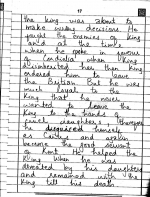 17
the king was about to
make wrong decisions. He
the enemies of King
and at the time
when he spoke in favour
of Cordelia when King
disinherited her then King
ordered him to leave
the Britian But he was
much loyal to the
King that he never
wanted to leave the
King to the hands of
cruel daughters. Therefore
disguised himself
as Caius and
became the servant
of King. He helped the
King when he was
by his daughters
and remained with the
King till his death